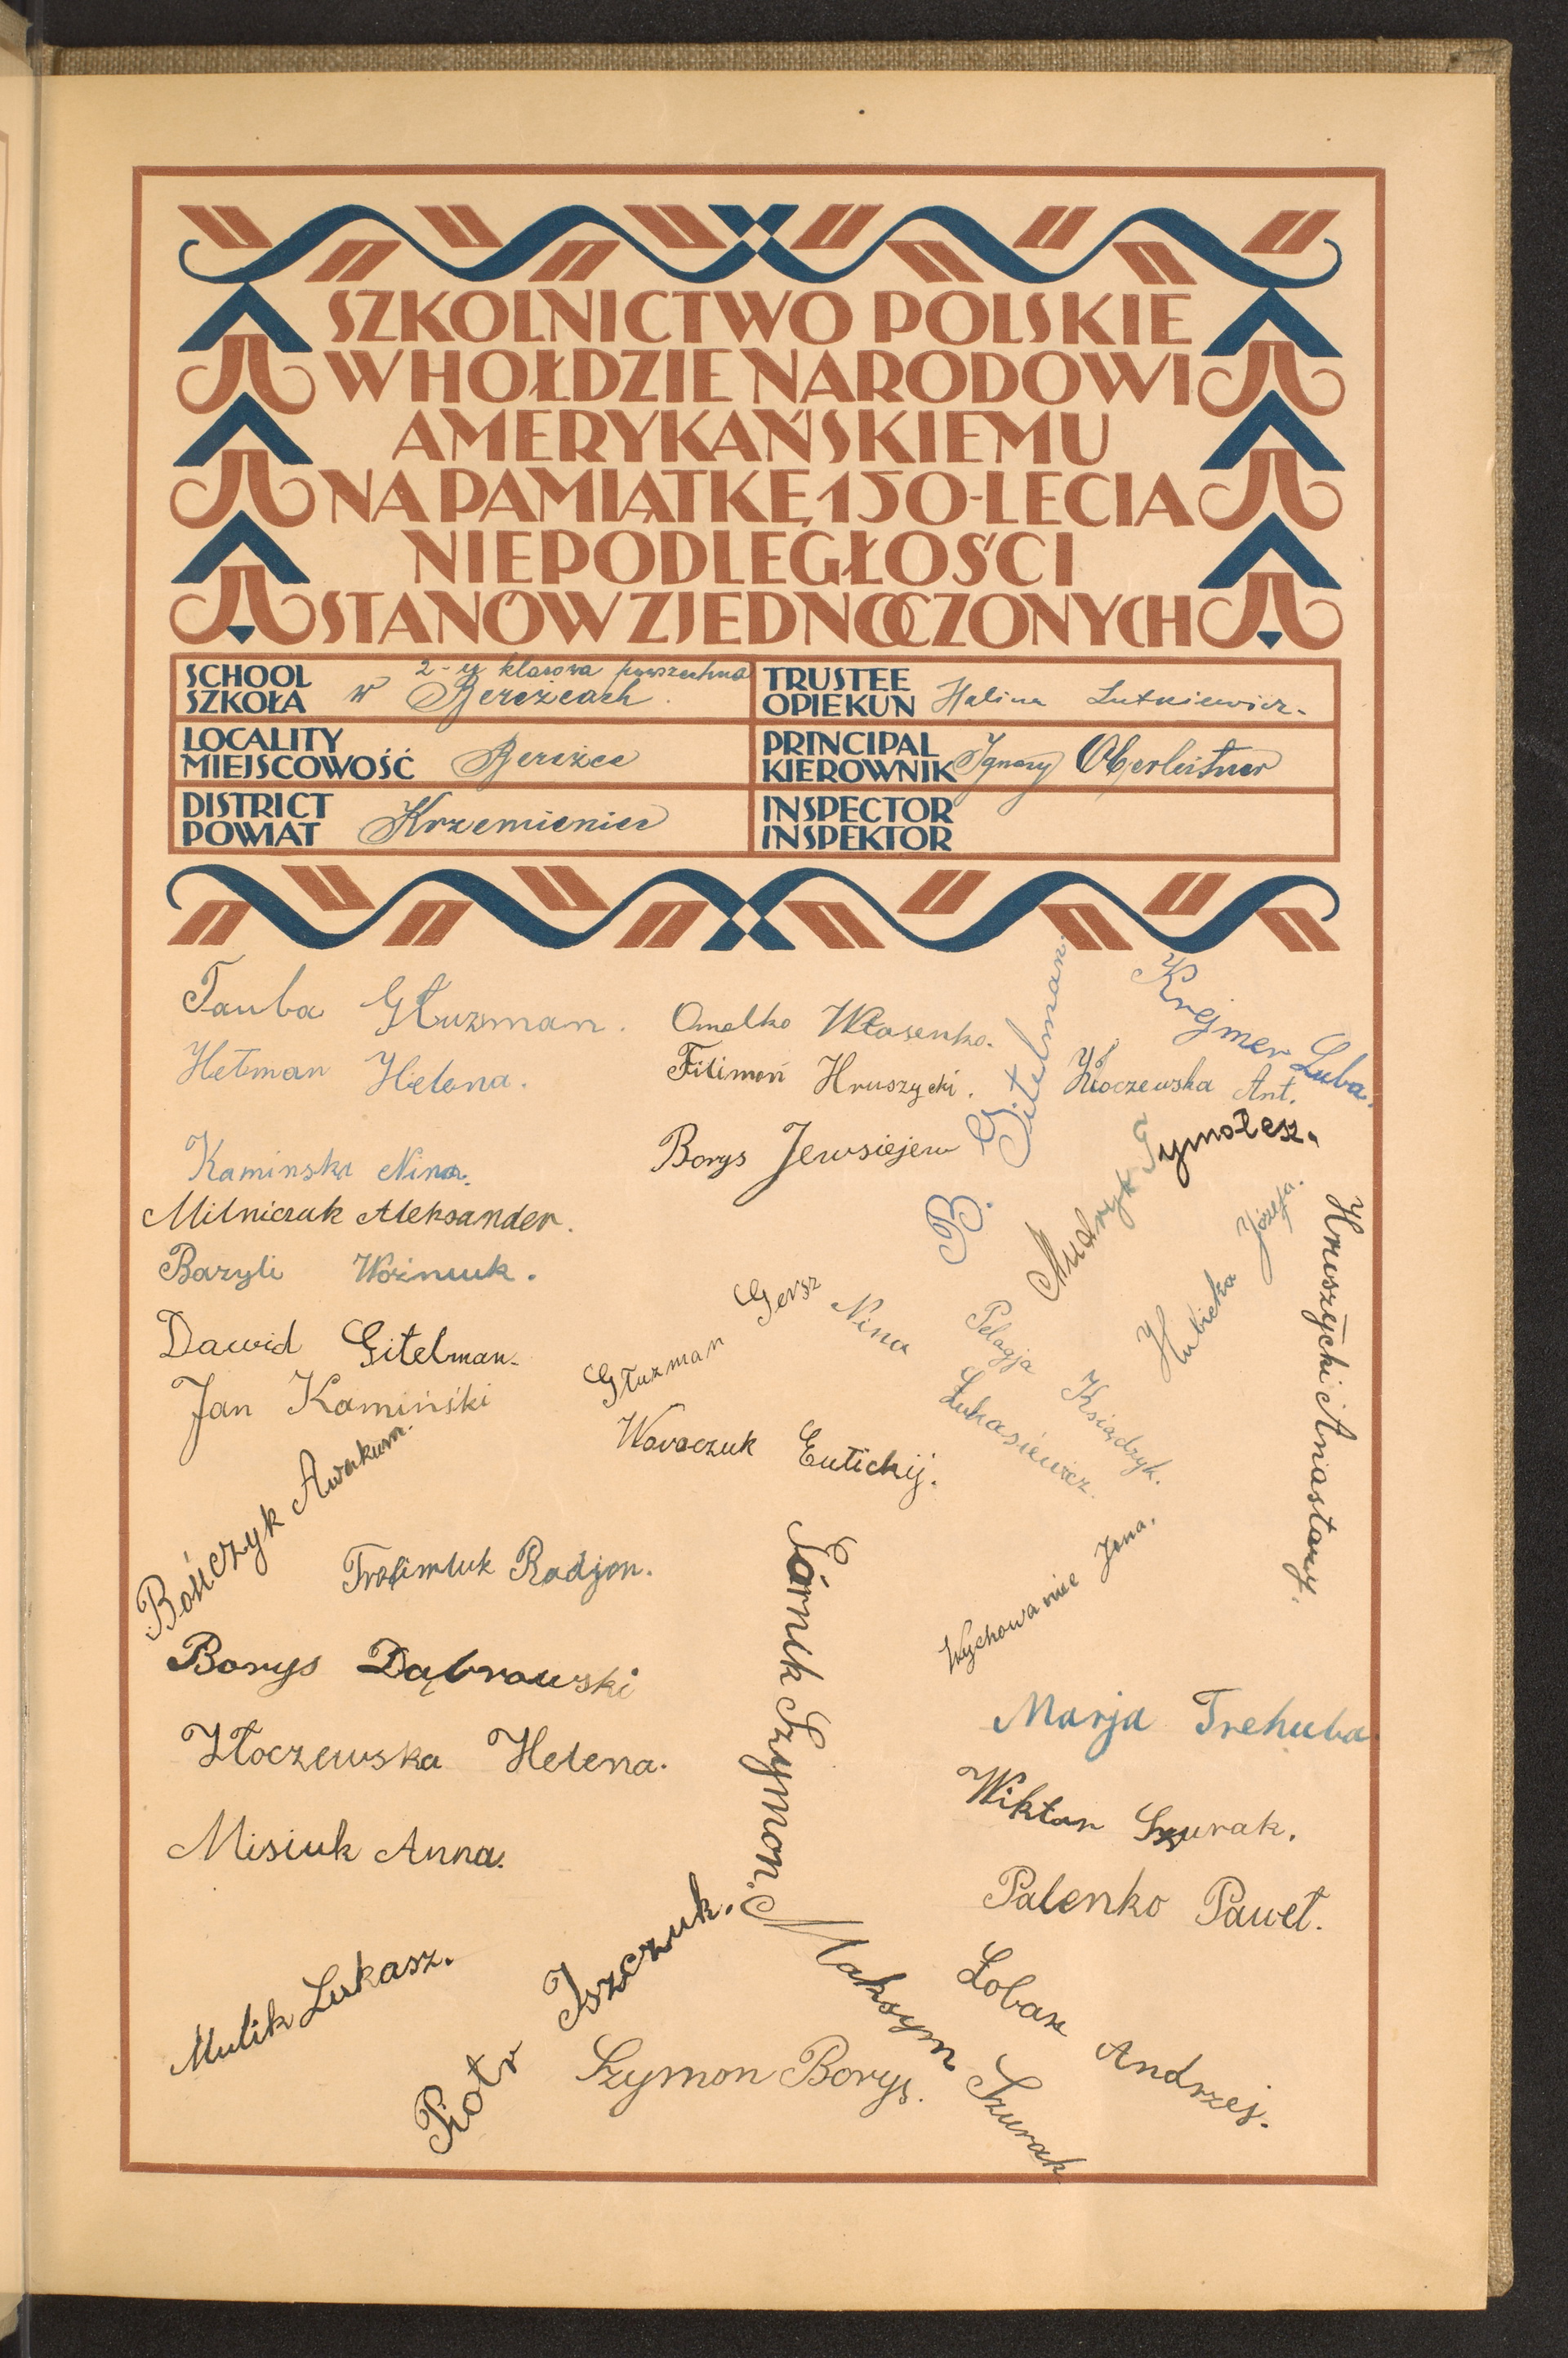 SZKOLNICTWO POLSKIE
W HOŁDZIE NARODOWI
AMERYKAŃSKIEMU
NA PAMIĄTKĘ 150-LECIA
NIEPODLEGŁOŚCI
STANÓW ZJEDNOCZONYCH
SCHOOL
SZKOŁA
2-u klasowa powszechna
w Bereżcach.
TRUSTEE
OPIEKUN
Halina Lutkiewicz.
LOCALITY
MIEJSCOWOŚĆ
Bereżce
PRINCIPAL
KIEROWNIK
Ignacy Oberleitner
DISTRICT
POWIAT
Krzemieniec
INSPECTOR
INSPEKTOR
Tauba Głuzman.
Omelko Własenko.
B. Gitelman.
Krejmer Luba.
Hetman Helena.
Filimon Hruszycki.
Złoczewska Ant.
Kaminska Nina.
Borys Jewsiejew
Mudryk Tymofesz.
Milniczuk Aleksander.
Bazyli Woźniuk.
Hubicka Józefa.
Hruszycki Aniastazy.
Dawid Gitelman.
Głuzman Gersz
Nina Łukasiewicz.
Pelagja Ksiądzyk.
Jan Kamiński
Waraczuk Eutichij.
Bończyk Awakum.
Trofimluk Radjon.
Sarnik Szymon.
Wychowaniec Jena.
Borys Dąbrowski
Marja Trehuba.
Złoczewska Helena.
Wiktor Szurak.
Misiuk Anna.
Palenko Paweł.
Mulik Łukasz.
Piotr Iszczuk.
Maksym Szurak
Łobaz Andrzej.
Szymon Borys.